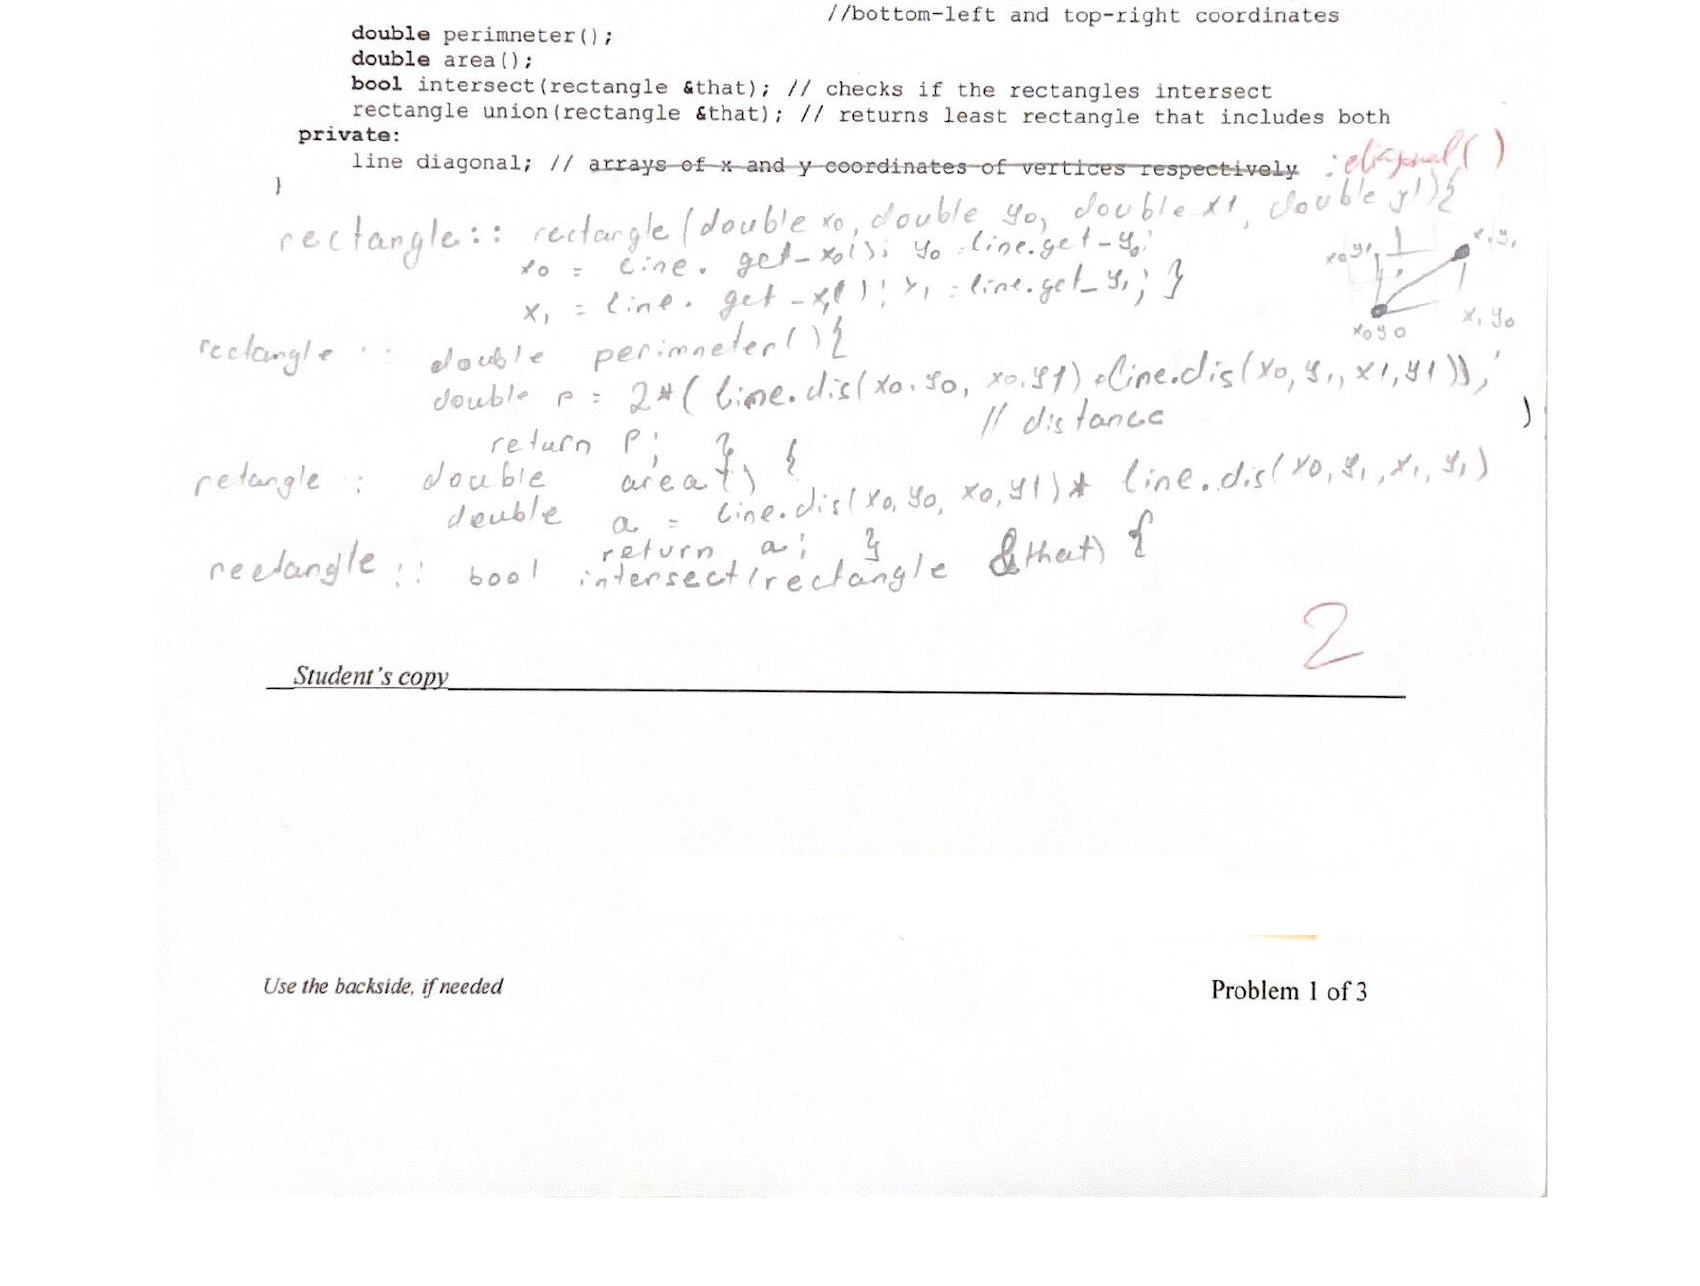 //bottom-left and top-right coordinates
double perimneter();
double area();
bool intersect(rectangle &that); // checks if the rectangles intersect
rectangle union(rectangle &that); // returns least rectangle that includes both
private:
line diagonal; // arrays of x and y coordinates of vertices respectively : diagonal( )
}
rectangle:: rectangle (double x0, double y0, double x1, double y1){
x0 = line. get-x0(); y0 = line.get-y0;
x1 = line. get-x1(); y1 = line.get_y1; }
x0 y1 x1 y1
x0 y0 x1 y0
rectangle :: double perimneter(){
double p = 2*( line.dis(x0, y0, x0, y1) + line.dis(x0, y1, x1, y1));
// distance
return p; }
retangle : double area() {
double a = line.dis(x0, y0, x0, y1) * line.dis(x0, y1, x1, y1)
return a; }
rectangle :: bool intersect(rectangle &that) {
2
Student's copy
Use the backside, if needed
Problem 1 of 3